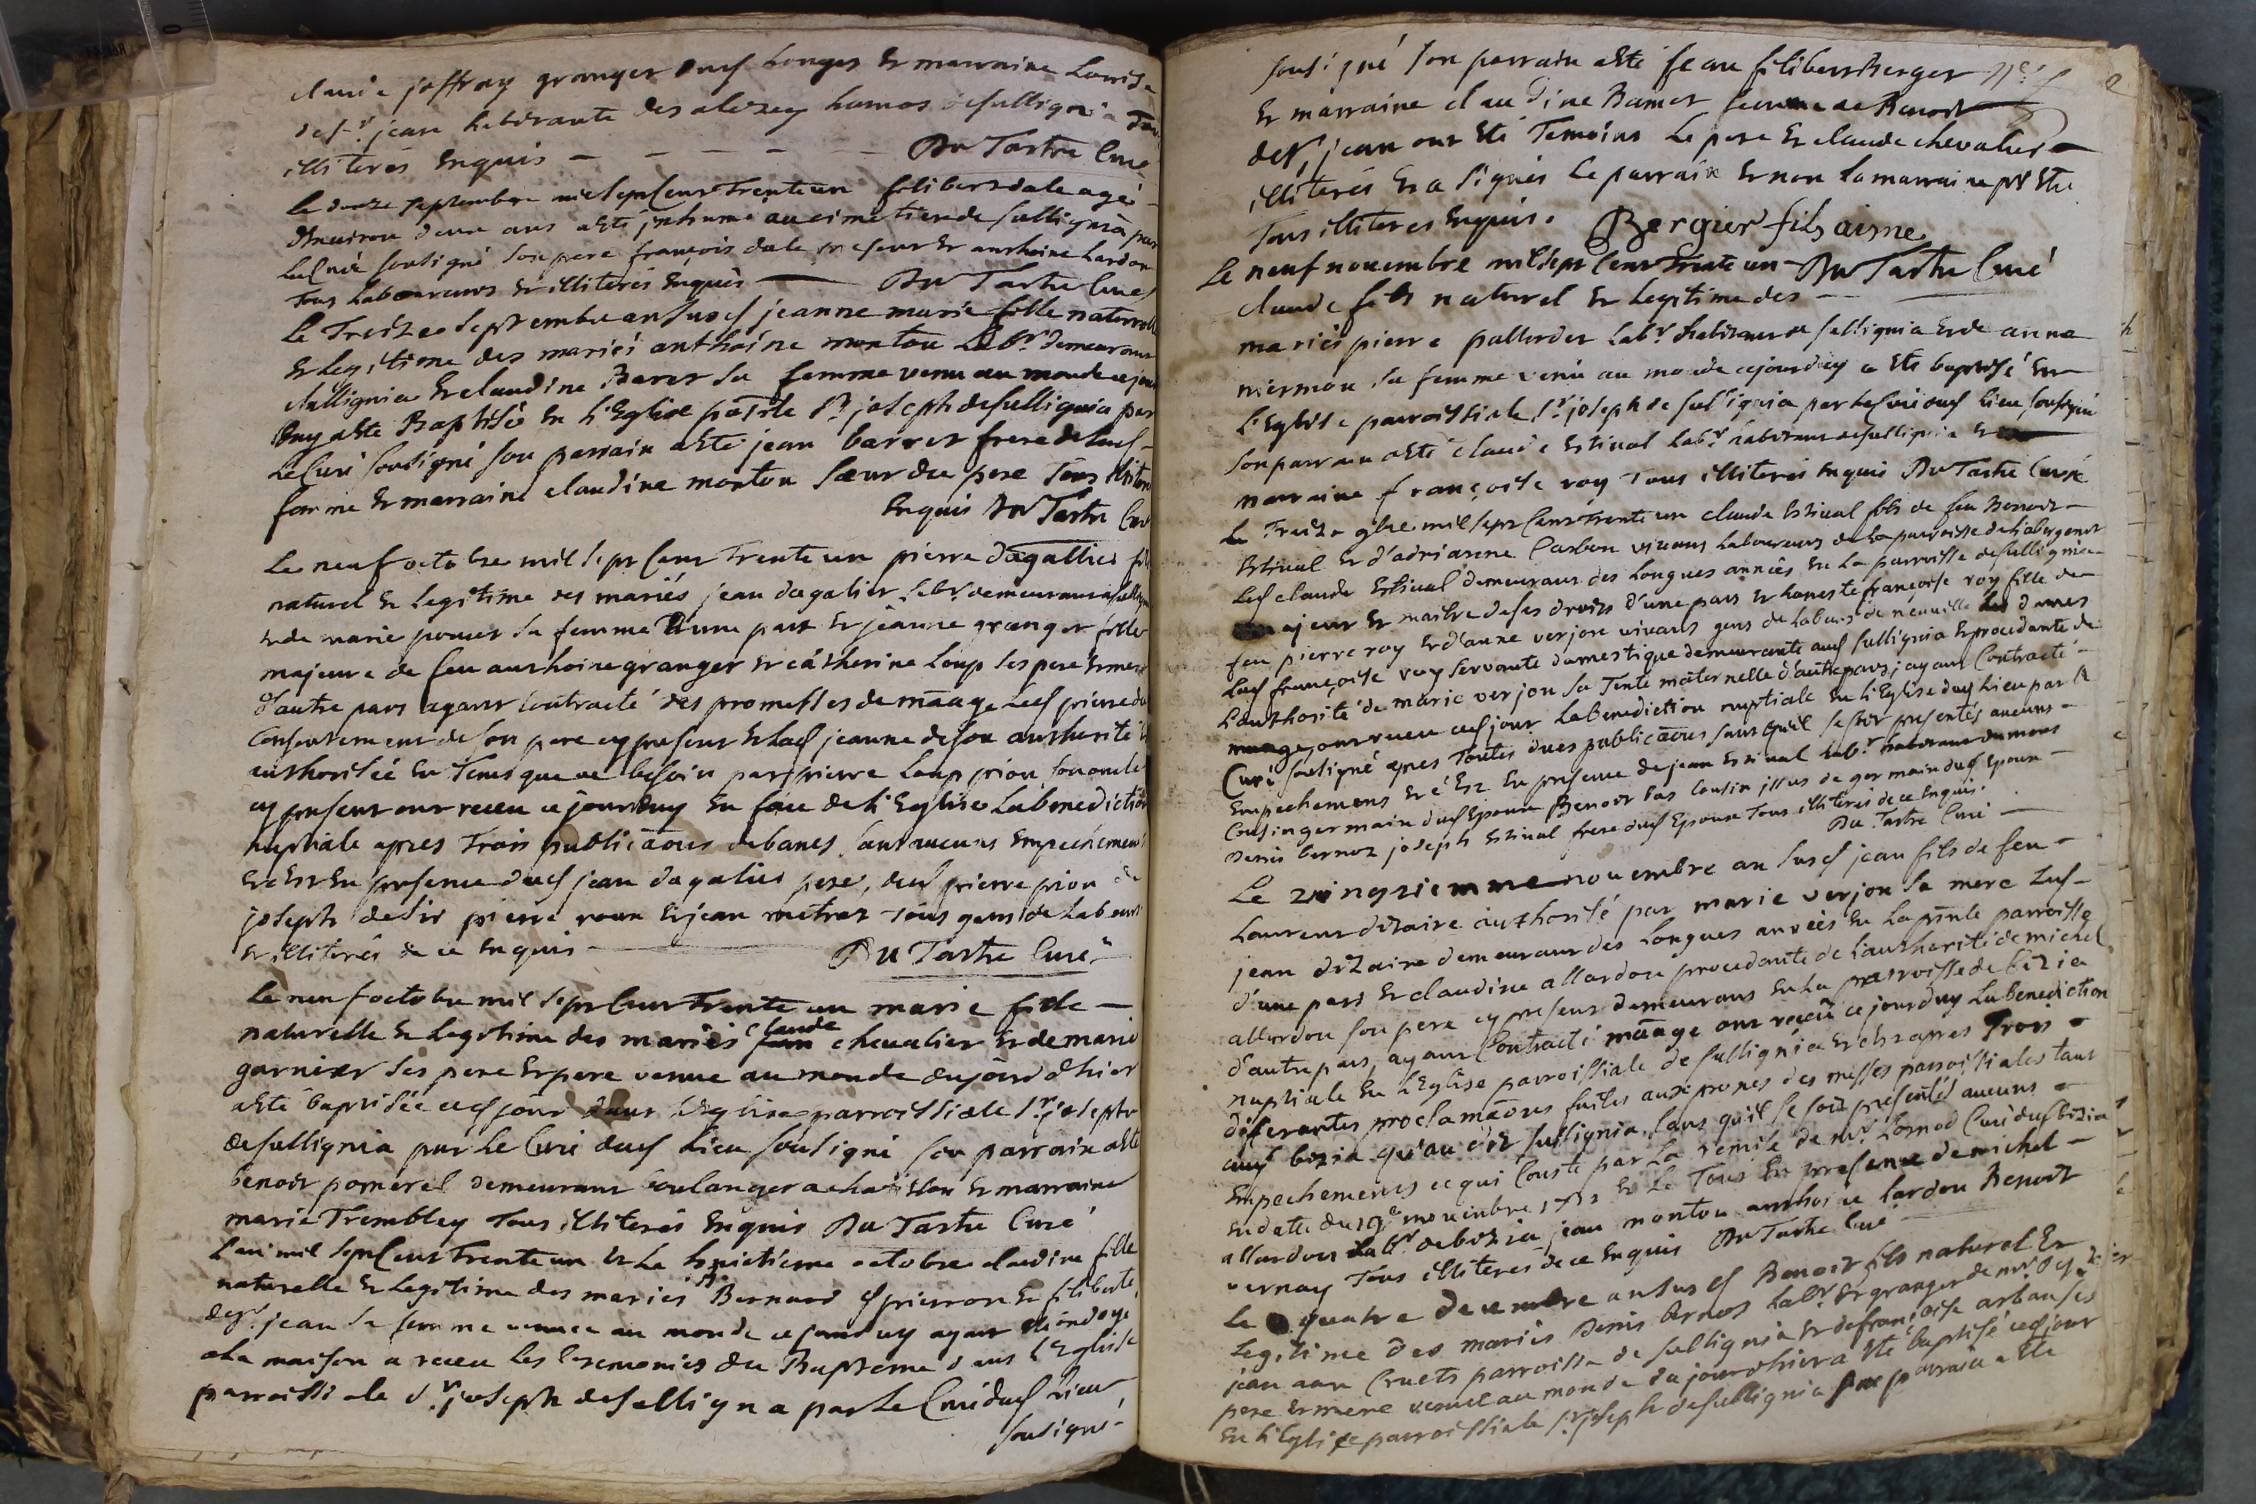 claude joffray granger dud Longes et marraine Louise
des.t jean habitante des alezey hamos de sulligna Tous
illiterés Enquis — Du Tartre Curé
le douze septembre mil sept Cent Trente un filibert dale agé
d'Environ deux ans a esté jnhumé au cimetiere de sullignia par
le Curé soutigné son pere françois dale present et anthoine Lardon
Tous Laboureurs et illiterés Enquis — Du Tartre Curé
le Treize septembre an susd jeanne marie fille naturelle
et legitime des mariés anthoine monton Lab.r demeurant
a sullignia et claudine Baret sa femme venu au monde ce jour
d'huy a esté Baptisée En l'Eglise par̃ile S.t joseph de sullignia par
le Curé soutigné son parrain a esté jean barret frere de lad
femme et marraine claudine monton sœur du pere Tous illiteres
Enquis Du Tartre Curé
Le neuf octobre mil sept Cent Trente un pierre dagallier fils
naturel et legitime des mariés jean dagalier Lab.r demeurant a sullignia
et de marie pomet sa femme d'une part et jeanne granger fille
majeure de feu anthoine granger et catherine Loup ses pere et mere
d'autre part ayant contracté des promesses de mãage led pierre du
consentement de son pere cy present et lad jeanne de son authorité et
authorisée En Tems que de besoin par pierre Loup pion son oncle
cy present ont receu ce jourdhuy En face de l'Eglise La benediction
nuptiale apres Trois publicãons de bancs sans aucuns Empechements
et c'Est En presence dud jean dagalier pere, dud pierre pion de
joseph desir pierre roux et jean metraz Tous gens de Labeur
et illiterés de ce Enquis — Du Tartre Curé
Le neuf octobre mil sept Cent Trente un marie fille —
naturelle et Legitime des mariés claude chevalier et de marie
garnier ses pere et mere venue au monde du jourd'hier
a esté baptisée ced jour dans l'Eglise parroissiale S.t joseph
de sullignia par le Curé dud Lieu soutigné son parrain a esté
benoit pomerel demeurant boulanger a chatillon et marraine
marie Trembley Tous illiterés Enquis Du Tartre Curé
L'an mil sept Cent Trente un et Le huictieme octobre claudine fille
naturelle et Legitime des mariés Bernard pierron et filiberte
des.t jean sa femme venue au monde ce jourdhuy ayant été ondoyé
a la maison a receu les Ceremonies du Bapteme dans l'Eglise
parroissiale S.t joseph de sulligna par le Curé dud Lieu
soutigné
soutigné son parrain a esté jean filibert Berger
et marraine claudine Bamet femme de Benoit
des.t jean ont Eté Temoins Le pere et claude chevalier
illiterés et a signés le parrain et non la marraine
Tous illiteres Enquis. Bergier fils aisné
Le neuf novembre mil sept Cent Trente un Du Tartre Curé
claude fils naturel et Legitime des —
mariés pierre pallordet Lab.r habitant a sullignia et de anne
mermon sa femme venu au monde ce jourdhuy a Eté baptisé En
l'Eglise parroissiale S.t joseph de sullignia par le Curé dud lieu soutigné
son parrain a esté claude Estival Lab.r habitant de sullignia et
marraine françoise roy Tous illiterés Enquis Du Tartre Curé
Le Treize 9bre mil sept Cent Trente un claude Estival fils de feu Benoit —
Estival et d'adrianne Carbon vivans Laboureurs de la parroisse de l'abergement
Led claude Estival demeurant des Longues années En La parroisse de sullignia
majeur et maitre de ses droits d'une part et honeste françoise roy fille de
feu pierre roy et d'anne verjon vivants gens de Labeur de neuville les dames
Lad françoise roy servante domestique demeurante aud sullignia et procedante de
L'authorité de marie verjon sa Tante maternelle d'autre part, ayant Contracté
mãage ont receu ced jour La benediction nuptiale En l'Eglise dud Lieu par le
Curé soutigné apres Toutes dues publicãons sans qu'il se soit presentés aucuns
Empechemens et c'Est En presence de jean Estival Lab.r habitant
Cousin germain dud Epoux Benoit bas Cousin issus de germain dud Epoux —
Denis bernoz joseph Estival frere dud Epoux Tous illiterés de ce Enquis.
Du Tartre Curé
Le vingtiemme novembre an susd jean fils de feu —
Laurent dizaire authorisé par marie verjon sa mere Led
jean dizaire demeurant des Longues années En La pñte parroisse
d'une part et claudine allardon procedante de l'authorité de michel
allardon son pere cy present demeurans En La parroisse de bizia
d'autre part, ayant Contracté mãage ont receu ce jourdhuy La benediction
nuptiale En l'Eglise parroissiale de sullignia et c'Est apres Trois
differantes proclamãons faites aux prones des messes parroissiales tant
aud bizia qu'au dit sullignia, sans qu'il se soit presentés aucuns
Empechements ce qui Conste par La remise de m.r Lornod Curé dud bizia
En datte du 19.e novembre 1731 et Le Tout En presence de michel —
allardon Lab.r de bizia jean monton anthoine Lardon Benoit
vernay Tous illiteres de ce Enquis Du Tartre Curé
Le quatre decembre an susd Benoit fils naturel et
Legitime des mariés Denis bernos Lab.r et granger de m.r
jean aux Cruets parroisse de sullignia et de françoise arbanses
pere et mere venu au monde du jourdhier a Eté baptisé ced jour
En l'Eglise parroissiale S.t joseph de sullignia son parrain a esté